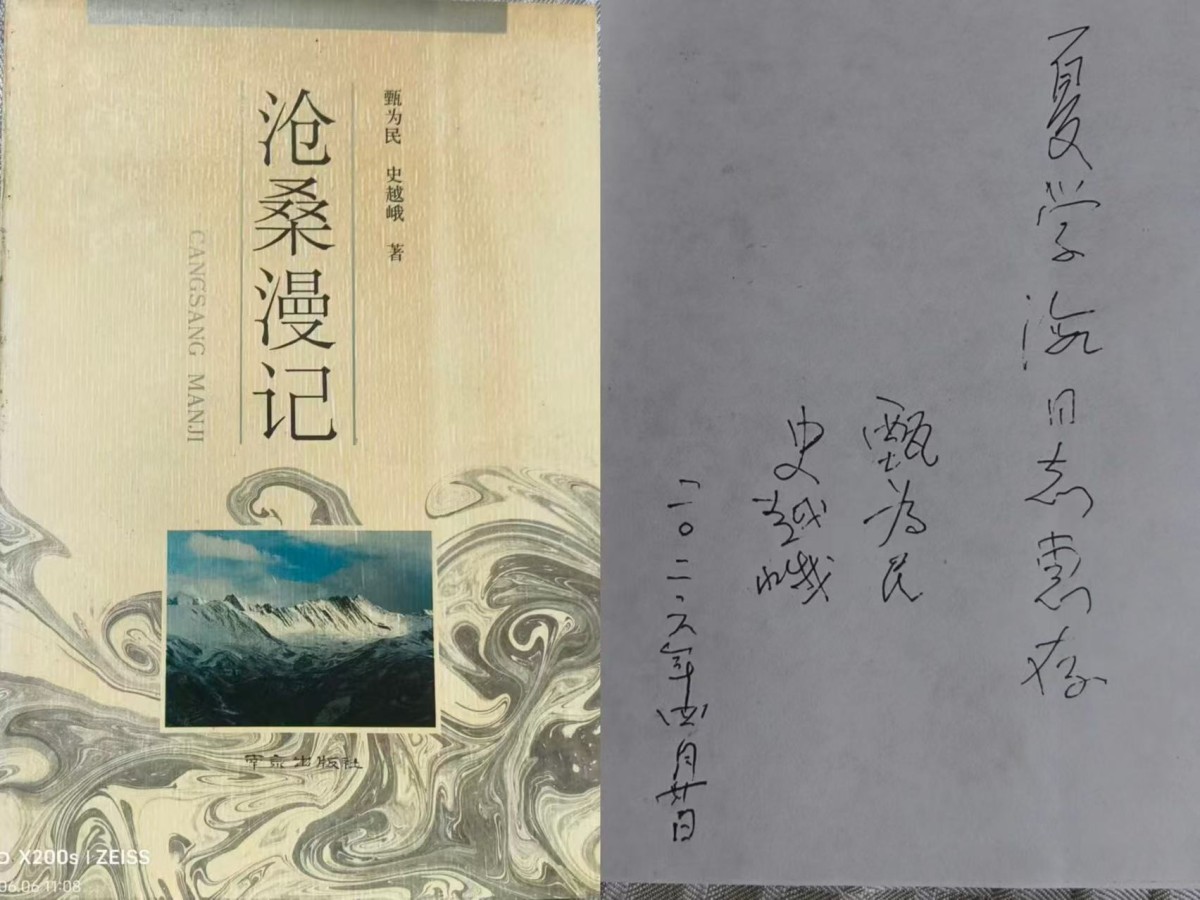 甄为民 史越峨 著
沧桑漫记
CANGSANG MANJI
南京出版社
X200s | ZEISS
06.06 11:08
夏学海同志惠存
甄为民
史越峨
二〇二六年四月廿日